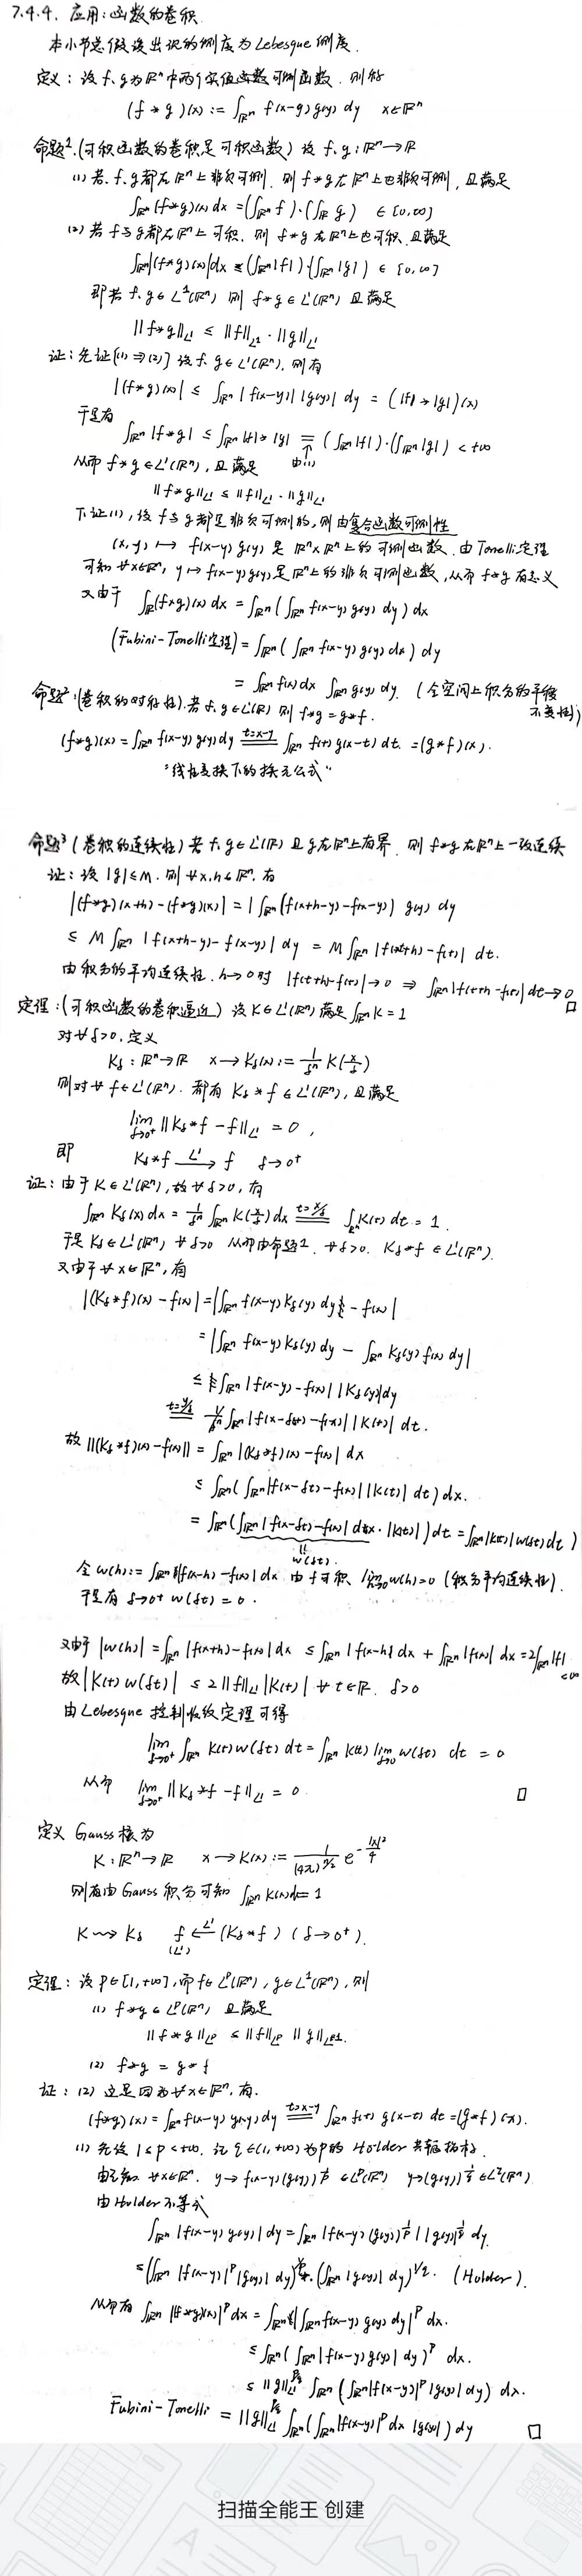 7.4.4. 应用:函数的卷积.
本小节总假设出现的测度为Lebesgue测度.
定义:设f.g为Rⁿ中两个实值函数可测函数.则称
(f*g)(x):=∫_{Rⁿ} f(x-y)g(y)dy x∈Rⁿ
命题1.(可积函数的卷积是可积函数)设f.g:Rⁿ→R
(1)若f.g都在Rⁿ上非负可测.则f*g在Rⁿ上也非负可测,且满足
∫_{Rⁿ}(f*g)(x)dx=(∫_{Rⁿ}f)·(∫_{R}g) ∈[0,∞]
(2)若f与g都在Rⁿ上可积.则f*g在Rⁿ上也可积.且满足
∫_{Rⁿ}|(f*g)(x)|dx≤(∫_{Rⁿ}|f|)·(∫_{Rⁿ}|g|)∈[0,∞]
即若f.g∈L¹(Rⁿ)则f*g∈L¹(Rⁿ)且满足
||f*g||_{L¹}≤||f||_{L¹}·||g||_{L¹}
证:先证[(1)⇒(2)]设f.g∈L¹(Rⁿ),则有
|(f*g)(x)|≤∫_{Rⁿ}|f(x-y)||g(y)|dy=(|f|*|g|)(x)
于是有
∫_{Rⁿ}|f*g|≤∫_{Rⁿ}|f|*|g|=(∫_{Rⁿ}|f|)·(∫_{Rⁿ}|g|)<+∞
从而f*g∈L¹(Rⁿ),且满足 由(1)
||f*g||_{L¹}≤||f||_{L¹}·||g||_{L¹}
下证(1),设f与g都是非负可测的,则由复合函数可测性
(x,y)↦f(x-y)g(y)是Rⁿ×Rⁿ上的可测函数.由Tonelli定理
可知∀x∈Rⁿ,y↦f(x-y)g(y)是Rⁿ上的非负可测函数,从而f*g有意义
又由于 ∫_{R}(f*g)(x)dx=∫_{Rⁿ}(∫_{Rⁿ}f(x-y)g(y)dy)dx
(Fubini-Tonelli定理)=∫_{Rⁿ}(∫_{Rⁿ}f(x-y)g(y)dx)dy
=∫_{Rⁿ}f(x)dx ∫_{Rⁿ}g(y)dy.(全空间上积分的平移不变性)
命题2:(卷积的对称性).若f.g∈L¹(R)则f*g=g*f.
(f*g)(x)=∫_{Rⁿ}f(x-y)g(y)dy \xlongequal{t=x-y} ∫_{Rⁿ}f(t)g(x-t)dt.=(g*f)(x).
"线性变换下的换元公式"
命题3(卷积的连续性)若f,g∈L¹(R)且g在Rⁿ上有界.则f*g在Rⁿ上一致连续
证:设|g|≤M.则∀x,h∈Rⁿ.有
|(f*g)(x+h)-(f*g)(x)|=|∫_{Rⁿ}(f(x+h-y)-f(x-y))g(y)dy
≤M∫_{Rⁿ}|f(x+h-y)-f(x-y)|dy=M∫_{Rⁿ}|f(t+h)-f(t)|dt.
由积分的平均连续性.h→0时|f(t+h)-f(t)|→0⇒∫_{Rⁿ}|f(t+h)-f(t)|dt→0 □
定理:(可积函数的卷积逼近)设K∈L¹(Rⁿ)满足∫_{Rⁿ}K=1
对∀δ>0.定义
K_δ:Rⁿ→R x→K_δ(x):=\frac{1}{δⁿ}K(\frac{x}{δ})
则对∀f∈L¹(Rⁿ).都有K_δ*f∈L¹(Rⁿ),且满足
lim_{δ→0⁺}||K_δ*f-f||_{L¹}=0,
即 K_δ*f \xrightarrow{L¹} f δ→0⁺
证:由于K∈L¹(Rⁿ),故∀δ>0,有
∫_{Rⁿ}K_δ(x)dx=\frac{1}{δⁿ}∫_{Rⁿ}K(\frac{x}{δ})dx \xlongequal{t=x/δ} ∫_{Rⁿ}K(t)dt=1.
于是K_δ∈L¹(Rⁿ)∀δ>0 从而由命题1.∀δ>0.K_δ*f∈L¹(Rⁿ).
又由于∀x∈Rⁿ,有
|(K_δ*f)(x)-f(x)|=|∫_{Rⁿ}f(x-y)K_δ(y)dy-f(x)|
=|∫_{Rⁿ}f(x-y)K_δ(y)dy-∫_{Rⁿ}K_δ(y)f(x)dy|
≤∫_{Rⁿ}|f(x-y)-f(x)||K_δ(y)|dy
\xlongequal{t=y/δ} ∫_{Rⁿ}|f(x-δt)-f(x)||K(t)|dt.
故||(K_δ*f)(x)-f(x)||=∫_{Rⁿ}|(K_δ*f)(x)-f(x)|dx
≤∫_{Rⁿ}(∫_{Rⁿ}|f(x-δt)-f(x)||K(t)|dt)dx.
=∫_{Rⁿ}(∫_{Rⁿ}|f(x-δt)-f(x)|dx·|K(t)|)dt=∫_{Rⁿ}|K(t)|w(δt)dt)
w(δt).
令w(h):=∫_{Rⁿ}|f(x-h)-f(x)|dx 由f可积 lim_{h→0}w(h)=0(积分平均连续性).
于是有δ→0⁺ w(δt)=0.
又由于|w(h)|=∫_{Rⁿ}|f(x+h)-f(x)|dx≤∫_{Rⁿ}|f(x-h)|dx+∫_{Rⁿ}|f(x)|dx=2∫_{Rⁿ}|f|<∞
故|K(t)w(δt)|≤2||f||_{L¹}|K(t)| ∀t∈R.δ>0
由Lebesgue控制收敛定理可得
lim_{δ→0⁺}∫_{Rⁿ}K(t)w(δt)dt=∫_{Rⁿ}K(t)lim_{δ→0}w(δt)dt=0
从而 lim_{δ→0⁺}||K_δ*f-f||_{L¹}=0. □
定义 Gauss核为
K:Rⁿ→R x→K(x):=\frac{1}{(4π)^{n/2}}e^{-\frac{|x|²}{4}}
则有由Gauss积分可知∫_{Rⁿ}K(x)dx=1
K⇝K_δ f \xleftarrow{L¹} (K_δ*f)(δ→0⁺).
(L¹)
定理:设p∈[1,+∞],而f∈L^p(Rⁿ),g∈L¹(Rⁿ),则
(1) f*g∈L^p(Rⁿ)且满足
||f*g||_{L^p}≤||f||_{L^p}||g||_{L¹}.
(2) f*g=g*f
证:(2)这是因为∀x∈Rⁿ.有.
(f*g)(x)=∫_{Rⁿ}f(x-y)g(y)dy \xlongequal{t=x-y} ∫_{Rⁿ}f(t)g(x-t)dt=(g*f)(x).
(1)先设1≤p<+∞.记q∈(1,+∞)为p的Hölder共轭指标.
∀x∈Rⁿ.y→f(x-y)(g(y))^{\frac{1}{p}}∈L^p(Rⁿ) y→(g(y))^{\frac{1}{q}}∈L^q(Rⁿ)
由Hölder不等式
∫_{Rⁿ}|f(x-y)g(y)|dy=∫_{Rⁿ}|f(x-y)(g(y))^{\frac{1}{p}}||g(y)|^{\frac{1}{q}}dy.
≤(∫_{Rⁿ}|f(x-y)|^p|g(y)|dy)^{1/p}·(∫_{Rⁿ}|g(y)|dy)^{1/q}.(Hölder).
从而有∫_{Rⁿ}|(f*g)(x)|^p dx=∫_{Rⁿ}|∫_{Rⁿ}f(x-y)g(y)dy|^p dx.
≤∫_{Rⁿ}(∫_{Rⁿ}|f(x-y)g(y)|dy)^p dx.
≤||g||_{L¹}^{p/q}∫_{Rⁿ}(∫_{Rⁿ}|f(x-y)|^p|g(y)|dy)dx.
Fubini-Tonelli=||g||_{L¹}^{p/q}∫_{Rⁿ}(∫_{Rⁿ}|f(x-y)|^p dx|g(y)|)dy □
扫描全能王 创建